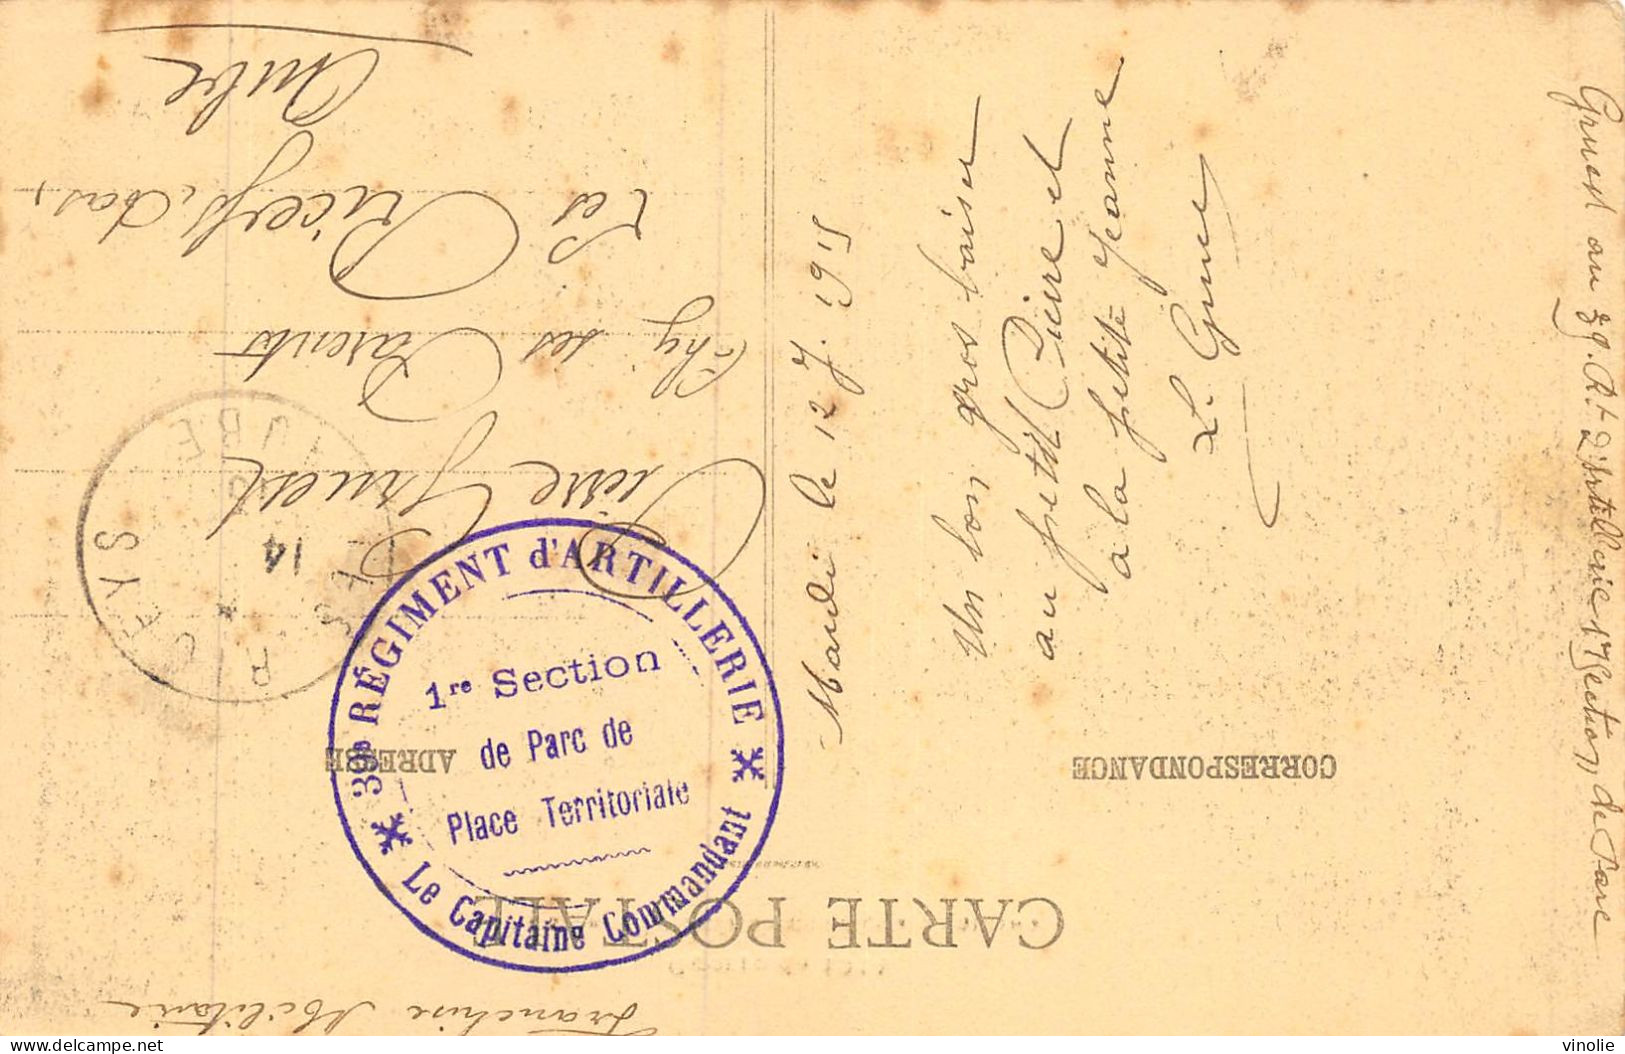 Franchise Militaire
CARTE POSTALE
CORRESPONDANCE
ADRESSE
Mardi le 12 J. 1915
Un bon gros baiser
au petit Pierre et
à la petite Jeanne
Gruest au 39. Rt d'Artillerie 1re Section de Parc
Pierre Gruest
Chz ses Parents
Les Riceys, bas,
Aube
RICEYS
AUBE
14
39e RÉGIMENT d'ARTILLERIE
1re Section
de Parc de
Place Territoriale
Le Capitaine Commandant
delcampe.net
vinolie